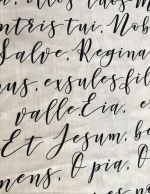 illos tuos m
ntris tui, Nob
Salve, Regina
nus, exsules fil
valle. Eia, e
Et Jesum, be
mens, O pia, O